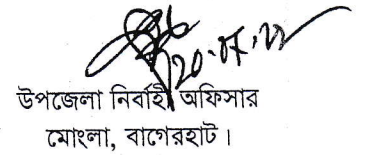 20.07.22
উপজেলা নির্বাহী অফিসার
মোংলা, বাগেরহাট।